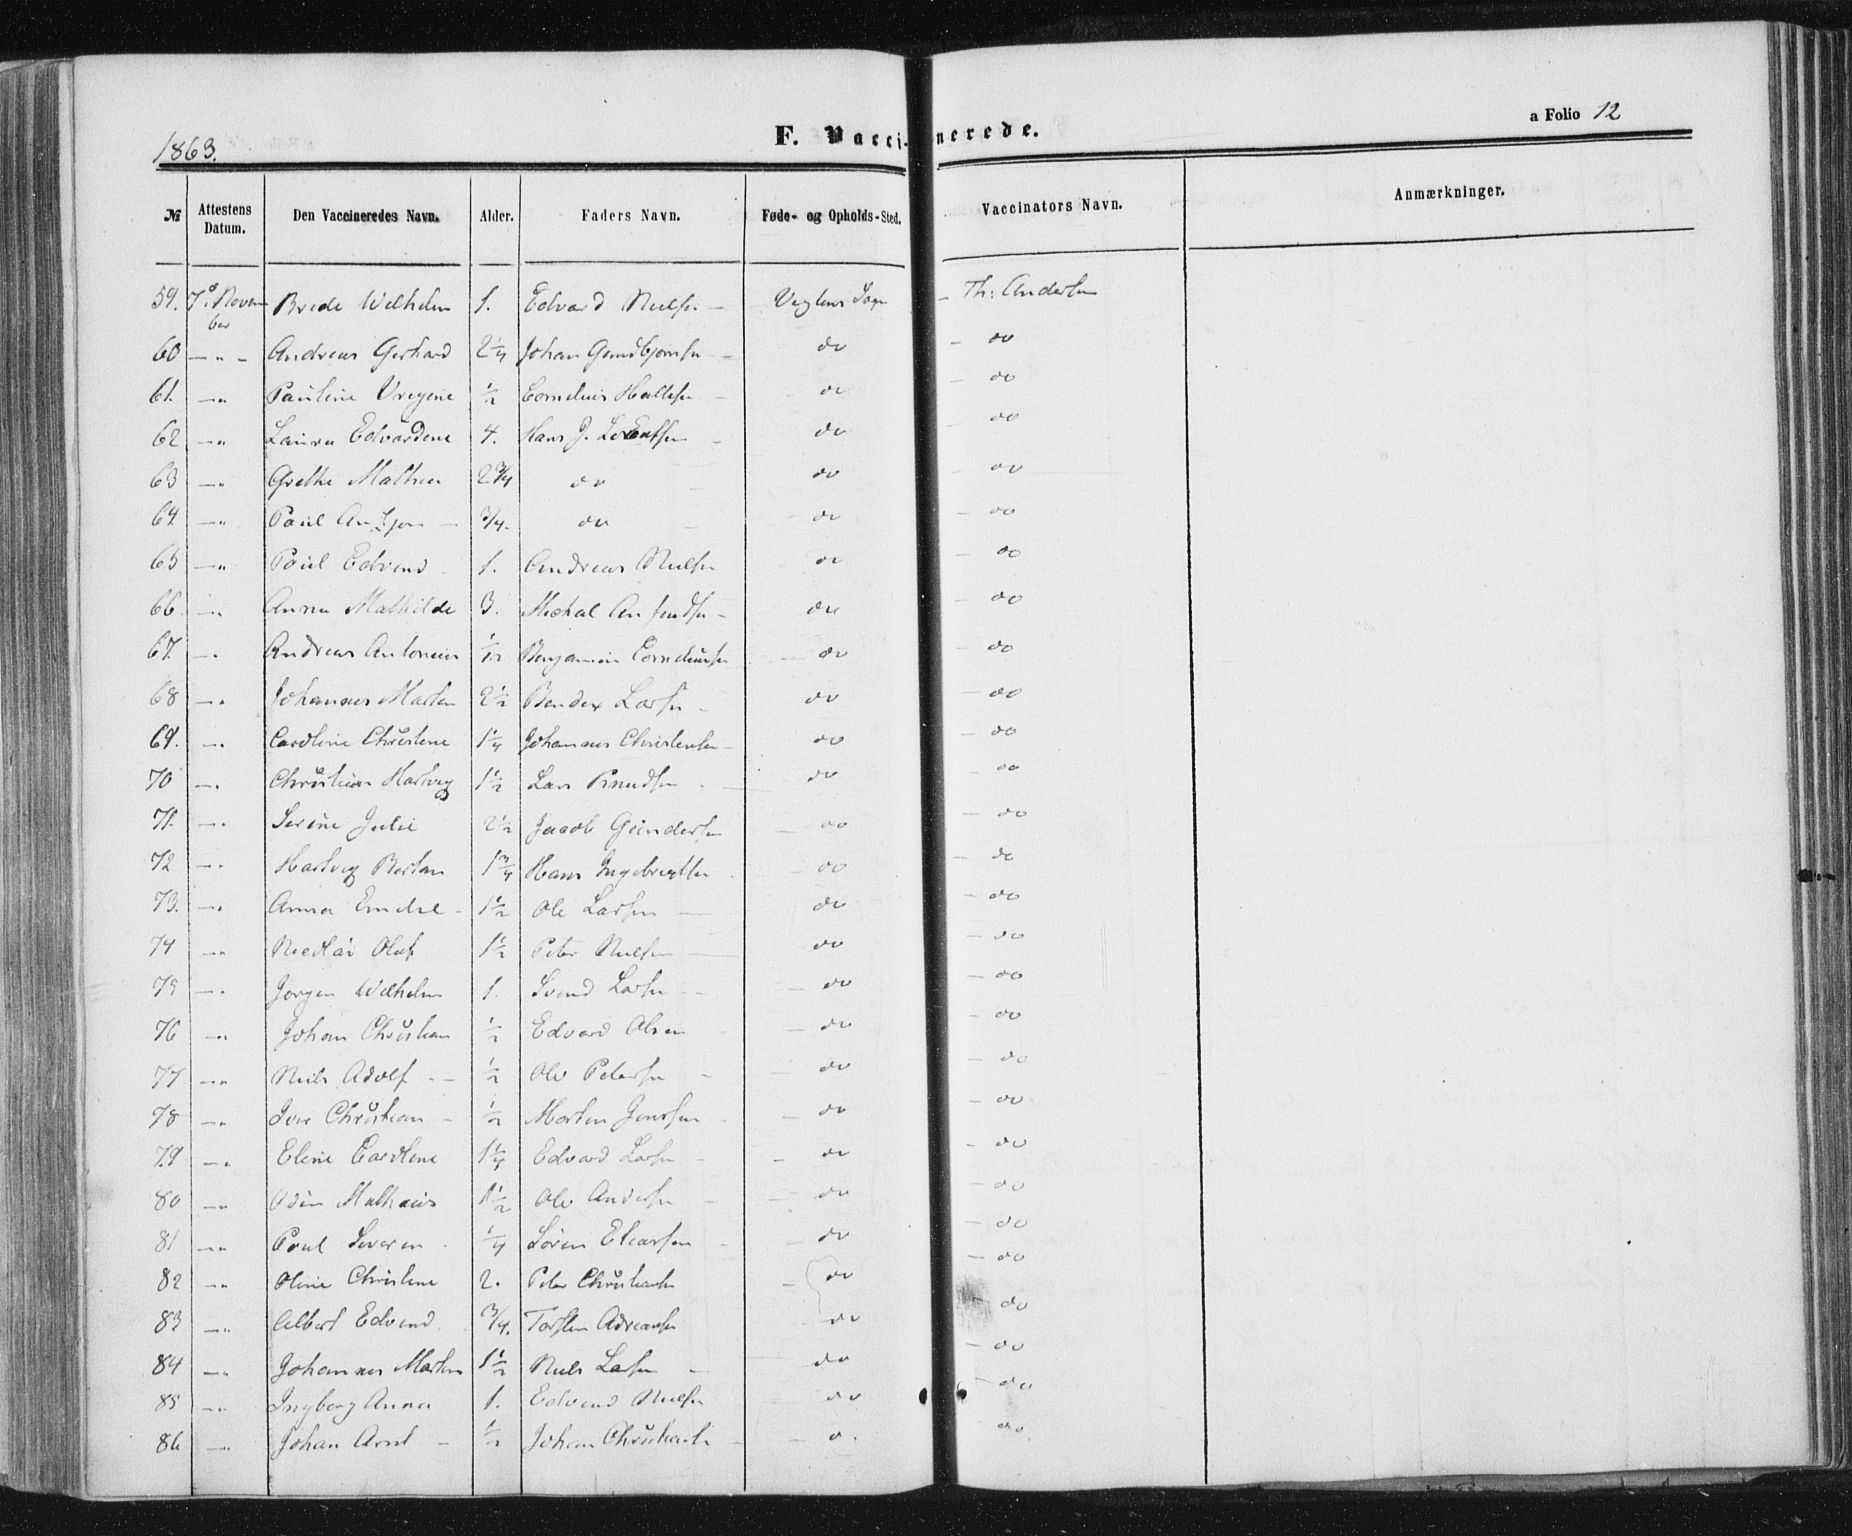 1863.
F. Vaccinerede.
a Folio 12
№ Attestens Datum. Den Vaccineredes Navn. Alder. Faders Navn. Føde- og Opholds-Sted. Vaccinators Navn. Anmærkninger.
59. 7d November Brede Wilhelm 1. Edvard Nielsen — Sogn — Th: Andersen
60 — " — Andreas Gerhard 2¼ Johan — do — do
61. — " Pauline ½ Cornelius — do — do
62 — " Laura Edvardine 4. Hans J. Lorentsen — do — do
63 — " Grethe Mathea 2¾ do do — do
64. — " Paul ¾. do — do — do
65 — " Paul Edvind 1. Andreas Nielsen do — do
66. — " Anna Mathilde 3. Michal — do — do
67. — " Andreas Antonius ½ Benjamin Corneliusen — do — do
68 — " Johannes Martin 2½ Bendix Larsen — do — do
69. — " Caroline Christine 1¼ Johannes Christensen — do — do
70 — " Christian Hartvig 1½ Lars Knudsen — do — do
71. — " Serine Julie 2½ Jacob Gundersen — do — do
72 — " Hartvig Bertan 1¾ Hans Ingebrigtsen — do — do
73. — " Anna — 1½ Ole Larsen — do — do
74 — " Nicolai Oluf 1½ Peter Nielsen — do — do
75 — " Jørgen Wilhelm 1. Svend Larsen — do — do
76 — " Johan Christian ½ Edvard Olsen — do — do
77 — " Niels Adolf — ½ Ole Petersen — do — do
78 — " Iver Christian — ½ Morten Jensen — do — do
79 — " Eline Caroline 1¼ Edvard Larsen — do — do
80 — " Odin Mathæus 1½ Ole Andersen — do — do
81 — " Poul Severin ¼ Søren Eliassen — do — do
82 — " Oline Christine 2. Peter Christiansen — do — do
83 — " Albert Edvind ¾. Torsten Adriansen — do — do
84 — " Johannes Martin 1½ Niels Larsen — do — do
85 — " Ingborg Anna 1. Edvind Nielsen — do — do
86 — " Johan Arnt — ½ Johan Christiansen — do. — do.